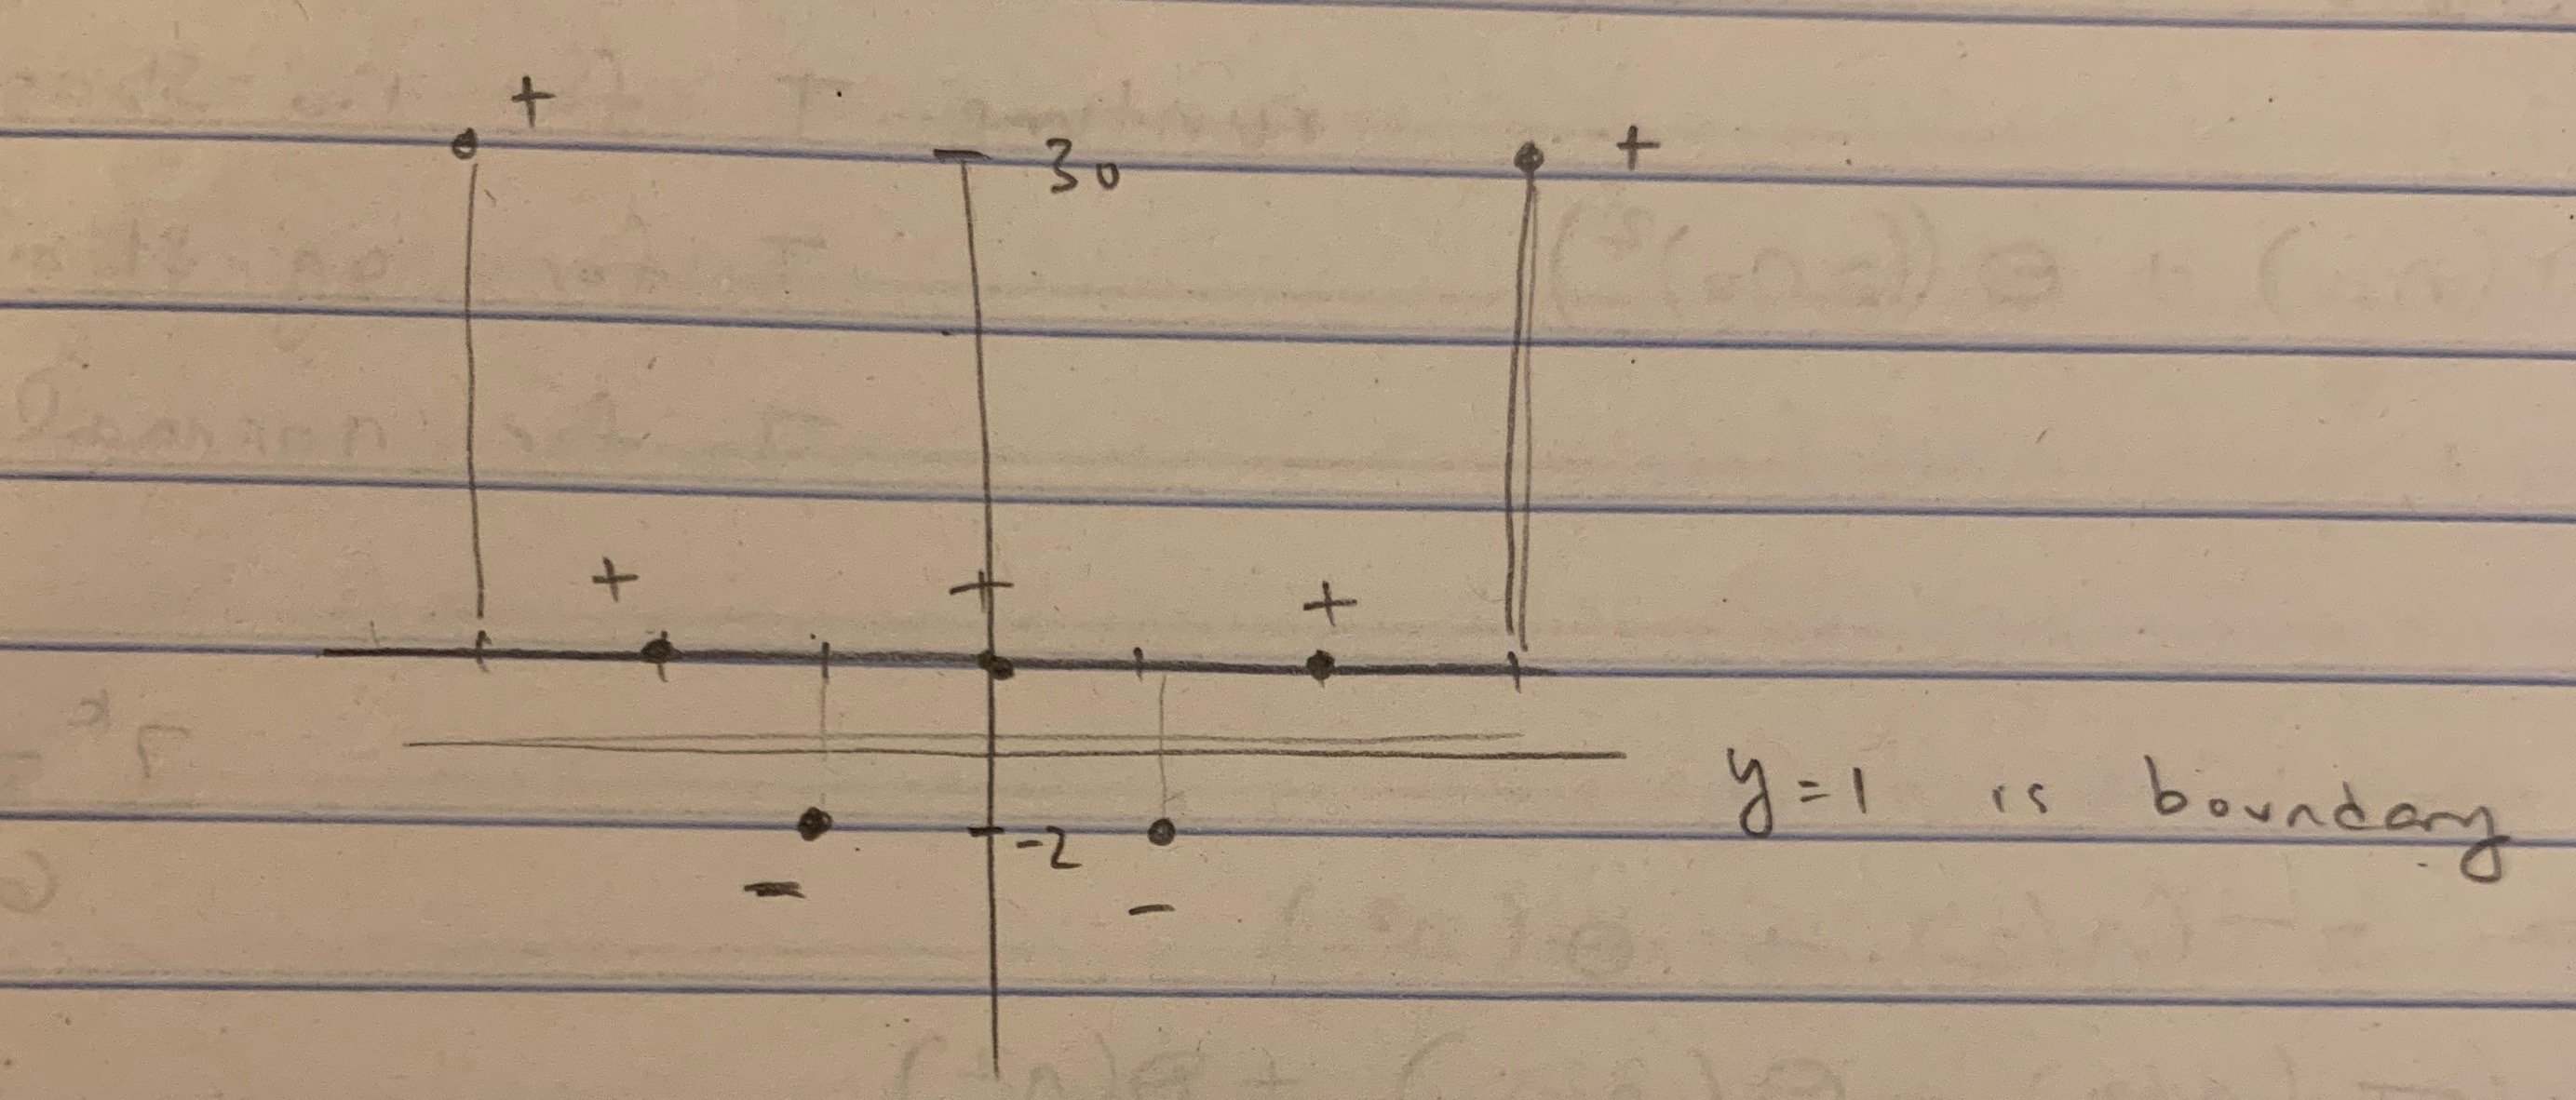 +
+
30
+
+
+
y=1 is boundary
-2
-
-